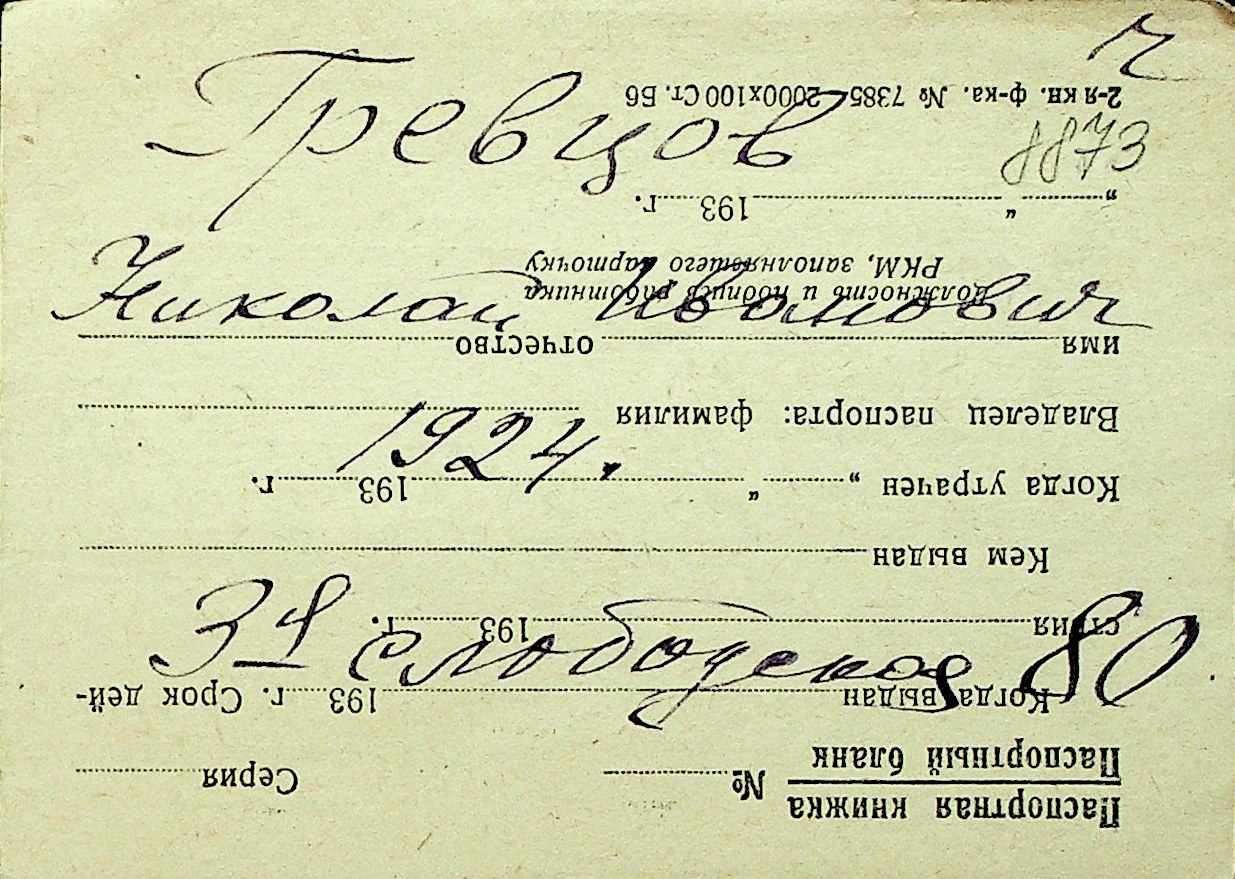 Ч
Гревцов
8873
Николай Иванович
1924.
3я Слободская 80
Паспортная книжка
Паспортный бланк
№ Серия
Когда выдан 193 г. Срок дей-
ствия 193 г.
Кем выдан
Когда утрачен „ “ 193 г.
Владелец паспорта: фамилия
имя отчество
Должность и подпись работника
РКМ, заполнявшего карточку
„ “ 193 г.
2-я кн. ф-ка. № 7385—2000х100 Ст. Б6